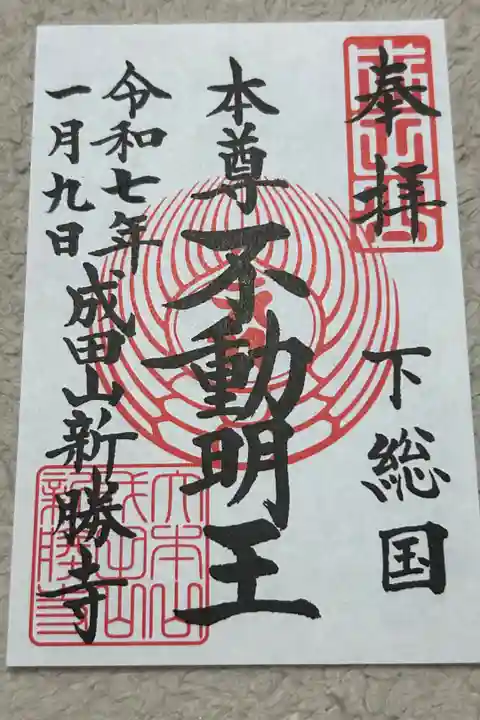 奉拝
下総国
本尊不動明王
令和七年
一月九日
成田山新勝寺
大本山
成田山
新勝寺